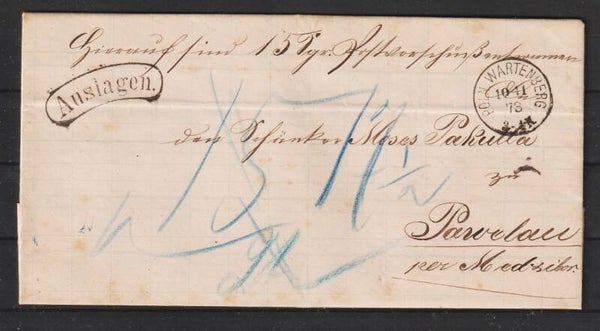 Hierauf sind 15 Sgr. Postvorschuß entnommen
Auslagen.
POLN. WARTENBERG
10 11
73
den Schänker Moses Pakulla
zu
Pawelau
per Medzibor.
15
17 1/2